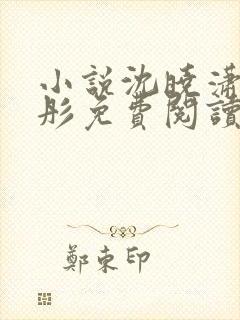 小説沈曉瀟
彤免費閱讀
鄭東印